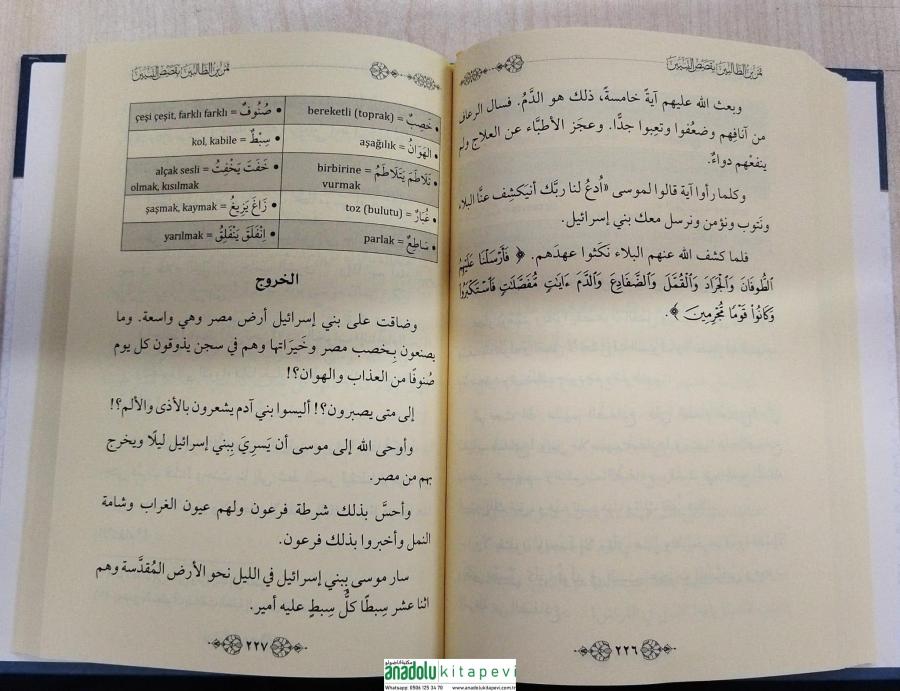 تمرين الطالبين بقصص النبيين
وبعث الله عليهم آيةً خامسةً، ذلك هو الدَّمُ. فسال الرعاف
من آنافِهم وضعُفوا وتعِبوا جدًّا. وعجَز الأطبَّاء عن العلاج ولم
ينفعْهم دواءٌ.
وكلما رأوا آية قالوا لموسى «اُدعُ لنا ربَّك أنيكشِف عنَّا البلاء
ونَتوب ونؤمن ونرسل معك بني إسرائيل.
فلما كشف الله عنهم البلاء نكَثوا عهدَهم. ﴿ فَأَرْسَلْنَا عَلَيْهِمُ
الطُّوفَانَ وَالْجَرَادَ وَالْقُمَّلَ وَالضَّفَادِعَ وَالدَّمَ ءَايَٰتٍ مُّفَصَّلَٰتٍ فَاسْتَكْبَرُوا
وَكَانُوا قَوْمًا مُّجْرِمِينَ ﴾.
٢٢٦
تمرين الطالبين بقصص النبيين
• خَصِبٌ = bereketli (toprak)
• صُنُوفٌ = çeşi çeşit, farklı farklı
• الهَوَانُ = aşağılık
• سِبْطٌ = kol, kabile
• تَلَاطَمَ يَتَلَاطَمُ = birbirine
vurmak
• خَفَتَ يَخْفِتُ = alçak sesli
olmak, kısılmak
• غُبَارٌ = toz (bulutu)
• زَاغَ يَزِيغُ = şaşmak, kaymak
• سَاطِعٌ = parlak
• اِنْفَلَقَ يَنْفَلِقُ = yarılmak
الخروج
وضاقت على بني إسرائيل أرض مصر وهي واسعة. وما
يصنعون بِخصب مصر وخَيرَاتها وهم في سجن يذوقون كل يوم
صُنوفًا من العذاب والهوان؟!
إلى متى يصبرون؟! أليسوا بني آدم يشعرون بالأذى والألم؟!
وأوحى الله إلى موسى أن يَسرِيَ بِبني إسرائيل ليلًا ويخرج
بهم من مصر.
وأحسَّ بذلك شرطة فرعون ولهم عيون الغراب وشامة
النمل وأخبروا بذلك فرعون.
سار موسى ببني إسرائيل في الليل نحو الأرض المُقدَّسة وهم
اثنا عشر سِبطًا كلُّ سِبطٍ عليه أمير.
٢٢٧
مكتبة اناضولو
anadolu kitapevi
Whatsapp: 0506 125 34 70 www.anadolukitapevi.com.tr